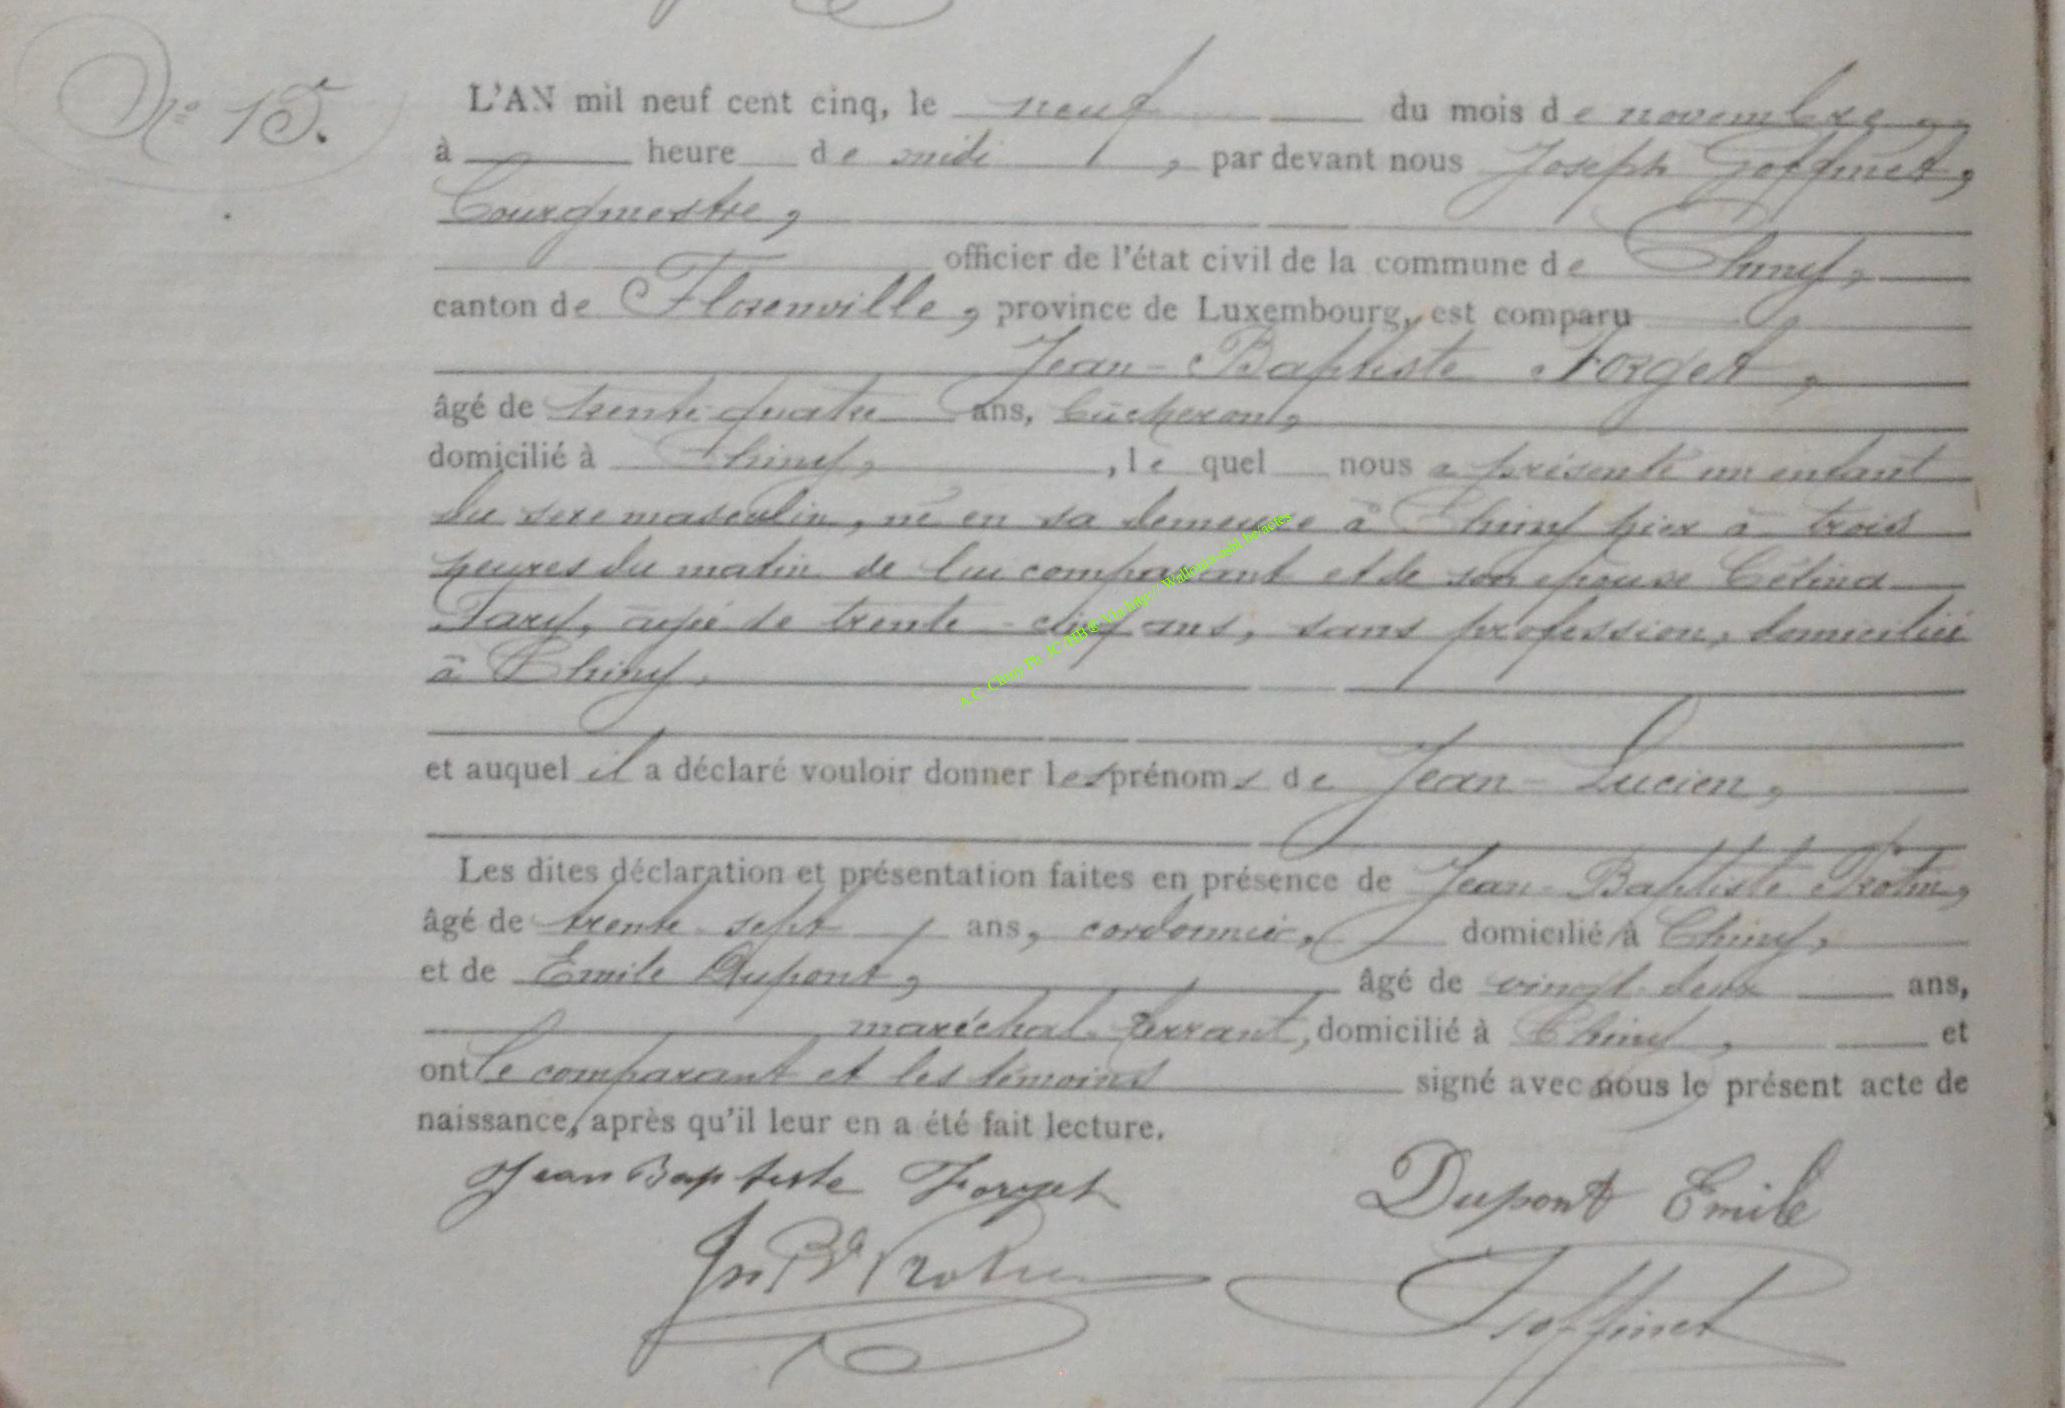 N° 15.
L'AN mil neuf cent cinq, le neuf du mois de novembre
à heure de midi, par devant nous Joseph Goffinet,
bourgmestre,
officier de l'état civil de la commune de Chiny,
canton de Florenville, province de Luxembourg, est comparu
Jean-Baptiste Forget,
âgé de trente-quatre ans, bûcheron,
domicilié à Chiny, le quel nous a présenté un enfant
du sexe masculin, né en sa demeure à Chiny hier à trois
heures du matin de lui comparant et de son épouse Célina
agée de trente-cinq ans, sans profession, domiciliée
à Chiny,
et auquel il a déclaré vouloir donner les prénoms de Jean-Lucien,
Les dites déclaration et présentation faites en présence de Jean-Baptiste
âgé de trente-sept ans, cordonnier, domicilié à Chiny,
et de Emile Dupont, âgé de vingt-deux ans,
maréchal-ferrant, domicilié à Chiny, et
ont le comparant et les témoins signé avec nous le présent acte de
naissance, après qu'il leur en a été fait lecture.
Jean Baptiste Forget Dupont Emile
Goffinet